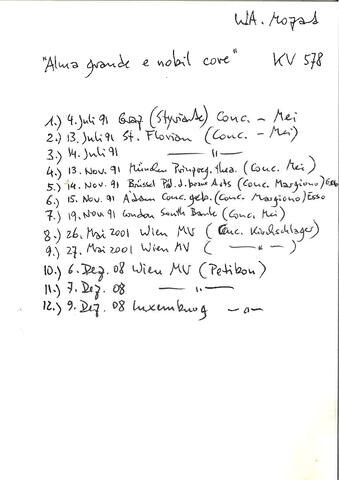 W.A. Mozart
"Alma grande e nobil core" KV 578
1.) 4. Juli 91 Graz (Styriarte) Conc. - Mei
2.) 13. Juli 91 St. Florian (Conc. - Mei)
3.) 14. Juli 91 — " —
4.) 13. Nov. 91 München Prinzreg. Thea. (Conc. Mei)
5.) 14. Nov. 91 Brüssel Pal. d. beaux Arts (Conc. Margiono) Esso
6.) 15. Nov. 91 A'dam Conc. geb. (Conc. Margiono) Esso
7.) 19. Nov. 91 London South Bank (Conc. Mei)
8.) 26. Mai 2001 Wien MV (Conc. Kirchschlager)
9.) 27. Mai 2001 Wien MV ( — " — )
10.) 6. Dez. 08 Wien MV (Petibon)
11.) 7. Dez. 08 — " —
12.) 9. Dez. 08 Luxemburg — " —